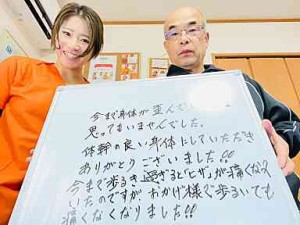 今まで身体が歪んで
思ってもいませんでした。
体幹の良い身体にしていただき
ありがとうございました!!
今まで歩き過ぎると「ヒザ」が痛くなって
いたのですが、おかげ様で歩いても
痛くなくなりました!!